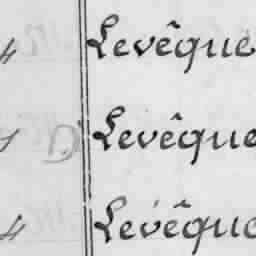 4 Levêque
1 D Levêque
4 Levêque